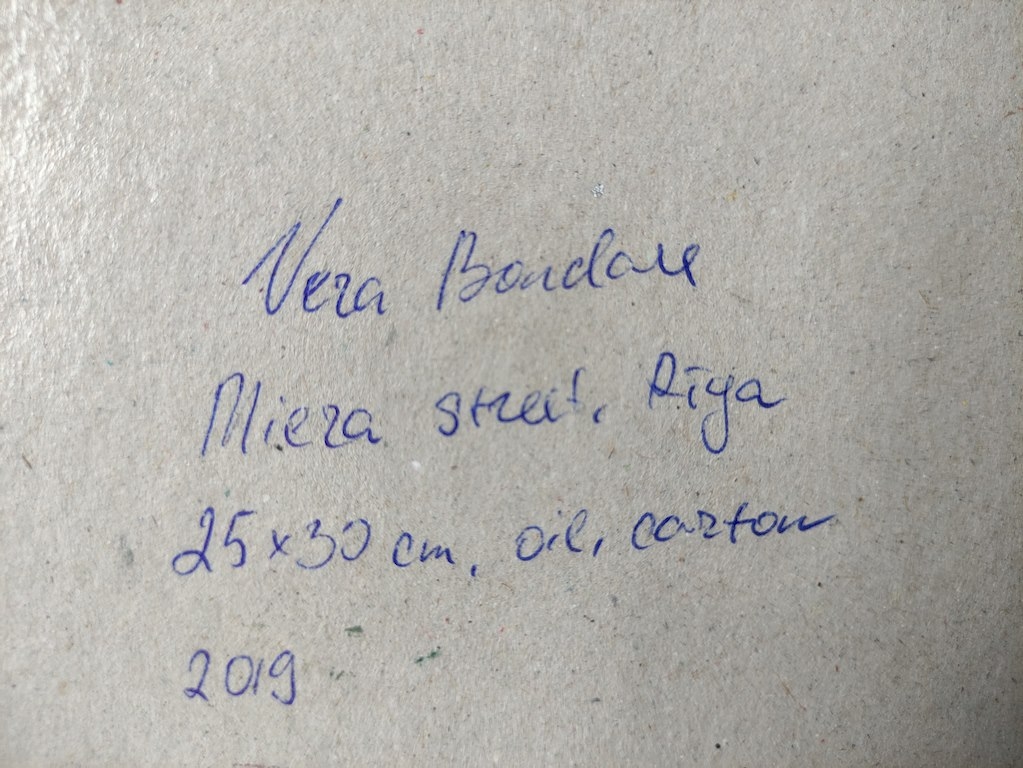 Vera Bondare
Miera street, Rīga
25x30 cm, oil, carton
2019